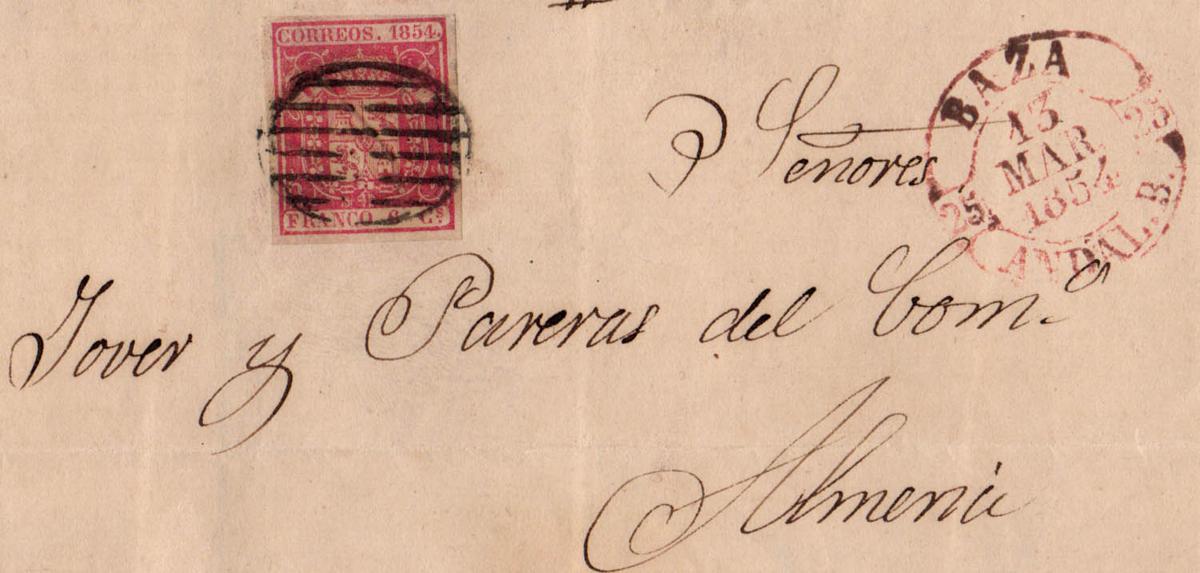 CORREOS. 1854.
FRANCO. 6 Cs
BAZA
13
MAR
1854
25
25
ANDAL. B.
Señores
Jover y Pareras del Com.o
Almería